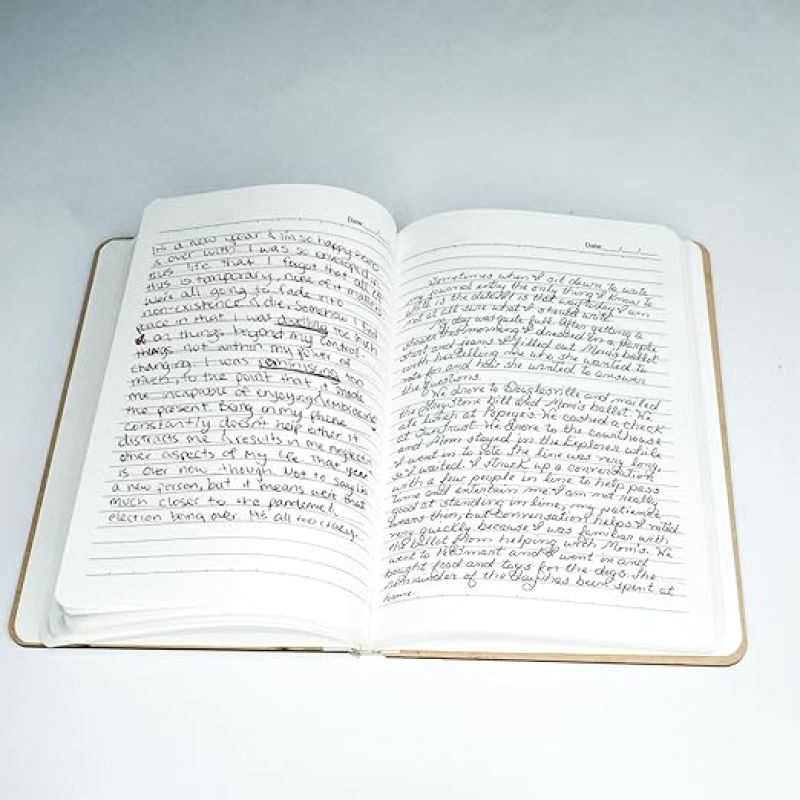 Date: / /
It's a new year & I'm so happy 2020
is over with. I was so enveloped in
this life that I forgot that all of
this is temporary, none of it matters
we're all going to fade into
non-existence & die. Somehow I lost
peace in that I was dwelling too much
on things beyond my control
things not within my power of
changing. I was reminiscing too
much, to the point that it made
me incapable of enjoying/embracing
the present. Being on my phone
constantly doesn't help either. It
distracts me & results in me neglecting
other aspects of my life. That year
is over now though. Not to say I'm
a new person, but it means we're that
much closer to the pandemic &
election being over. It's all too crazy.
Date: / /
Sometimes when I sit down to write
my journal entry the only thing I know to
write is the date. It is that way today. I am
not at all sure what I should write.
My day was quite full. After getting a
shower first morning I dressed in a purple
shirt and jeans. I filled out Mom's ballot
with her telling me who she wanted to
vote for and how she wanted to answer
the questions.
We drove to Douglasville and mailed
the Key Stone bill and Mom's ballot. We
ate lunch at Popeyes. We cashed a check
at Suntrust. We drove to the courthouse
and Mom stayed in the Explorer while
I went in to vote. The line was very long,
so I waited. I struck up a conversation
with a few people in line to help pass
time and entertain me. I am not really
good at standing in line, my patience
wears thin, but conversation helps. I voted
very quickly because I was familiar with
the ballot from helping with Mom's. We
went to Petsmart and I went in and
bought food and toys for the dogs. The
remainder of the day has been spent at
home.